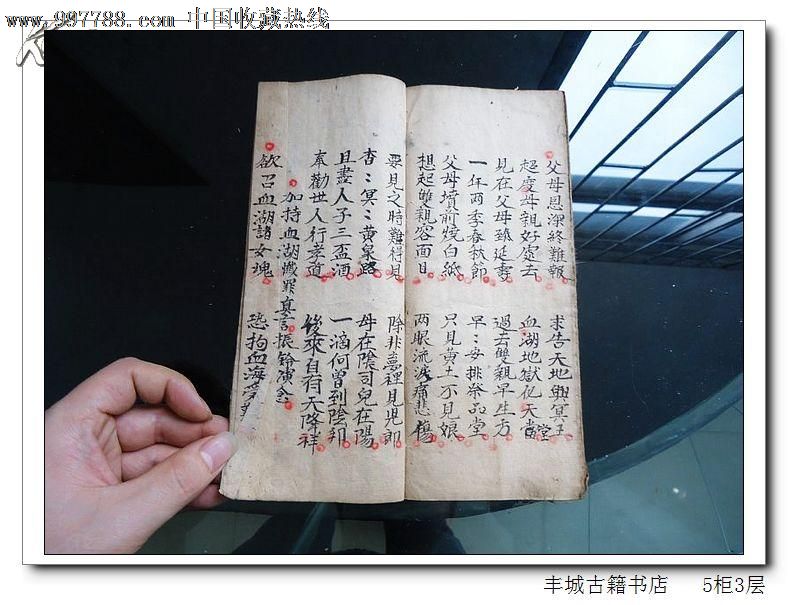 www.997788.com 中国收藏热线
父母恩深終難報 求告天地與冥王
超度母親好處去 血湖地獄化天堂
見在父母臻延壽 過去雙親早生方
一年兩季春秋節 早:安排祭品堂
父母墳前燒白紙 只見黃土不見娘
想起雙親容面目 兩眼流淚痛悲傷
要見之時難得見 除非夢裡見兒郎
杳:冥:黃泉路 母在陰司兒在陽
且盡人子三盃酒 一滴何曾到陰邦
奉勸世人行孝道 後來自有天降祥
加持血湖懺罪真言振鈴演念
欲召血湖諸女塊 恐拘血海
丰城古籍书店 5柜3层